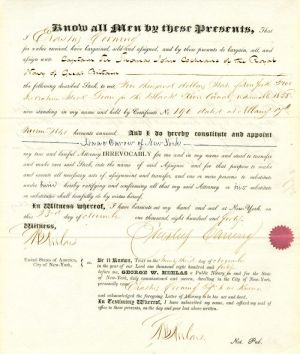 Know all Men by these Presents, That
I Erastus Corning
for value received, have bargained, sold and assigned, and by these presents do bargain, sell, and
assign unto Captain Sir Thomas John Cochrane of the Royal
Navy of Great Britain
the following described Stock, to wit: Five thousand dollars
now standing in my name and held by Certificate No. 190 dated at Albany
And I do hereby constitute and appoint
Isaac Carow of New York
my true and lawful Attorney IRREVOCABLY for me and in my name and stead to transfer
and make over said Stock, into the name of said Assignee and for that purpose to make
and execute all necessary acts of assignment and transfer, and one or more persons to substitute
under hereby ratifying and confirming all that my said Attorney or his
substitute shall lawfully do by virtue hereof.
In Witness whereof, I have hereunto set my hand and seal at New-York on
the 23d day of December one thousand, eight hundred and forty
Witness,
Erastus Corning
United States of America,
City of New-York,
Be it Known, That on the
in the year of our Lord one thousand eight hundred and forty
before me GEORGE W. a Public Notary in and for the State of
New-York, duly commissioned and sworn, dwelling in the City of New-York, personally
came Erastus Corning
and acknowledged the foregoing Letter of Attorney to be his act and deed.
In Testimony Whereof, I have subscribed my name, and affixed my seal of office
to these presents, on the day and year last above written.
Not. Pub.